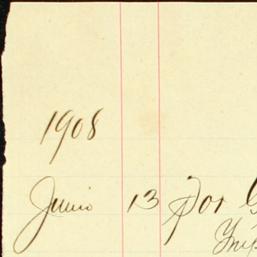 1908
Junio 13 Por